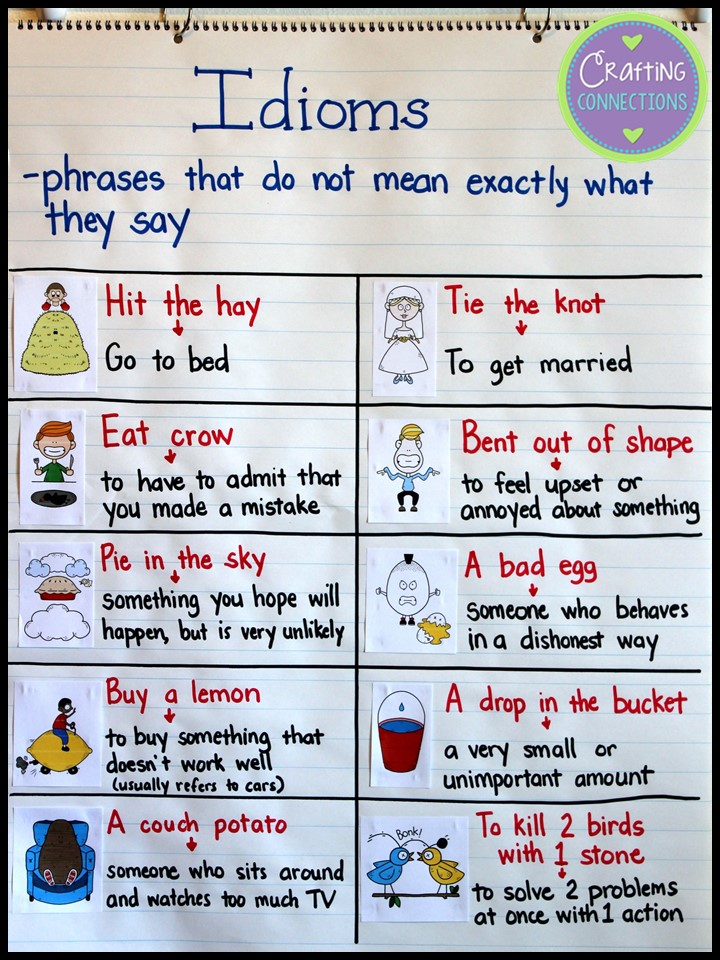 Crafting
CONNECTIONS
Idioms
-phrases that do not mean exactly what
they say
Hit the hay
Go to bed
Tie the knot
To get married
Eat crow
to have to admit that
you made a mistake
Bent out of shape
to feel upset or
annoyed about something
Pie in the sky
something you hope will
happen, but is very unlikely
A bad egg
someone who behaves
in a dishonest way
Buy a lemon
to buy something that
doesn't work well
(usually refers to cars)
A drop in the bucket
a very small or
unimportant amount
A couch potato
someone who sits around
and watches too much TV
Bonk!
To kill 2 birds
with 1 stone
to solve 2 problems
at once with 1 action